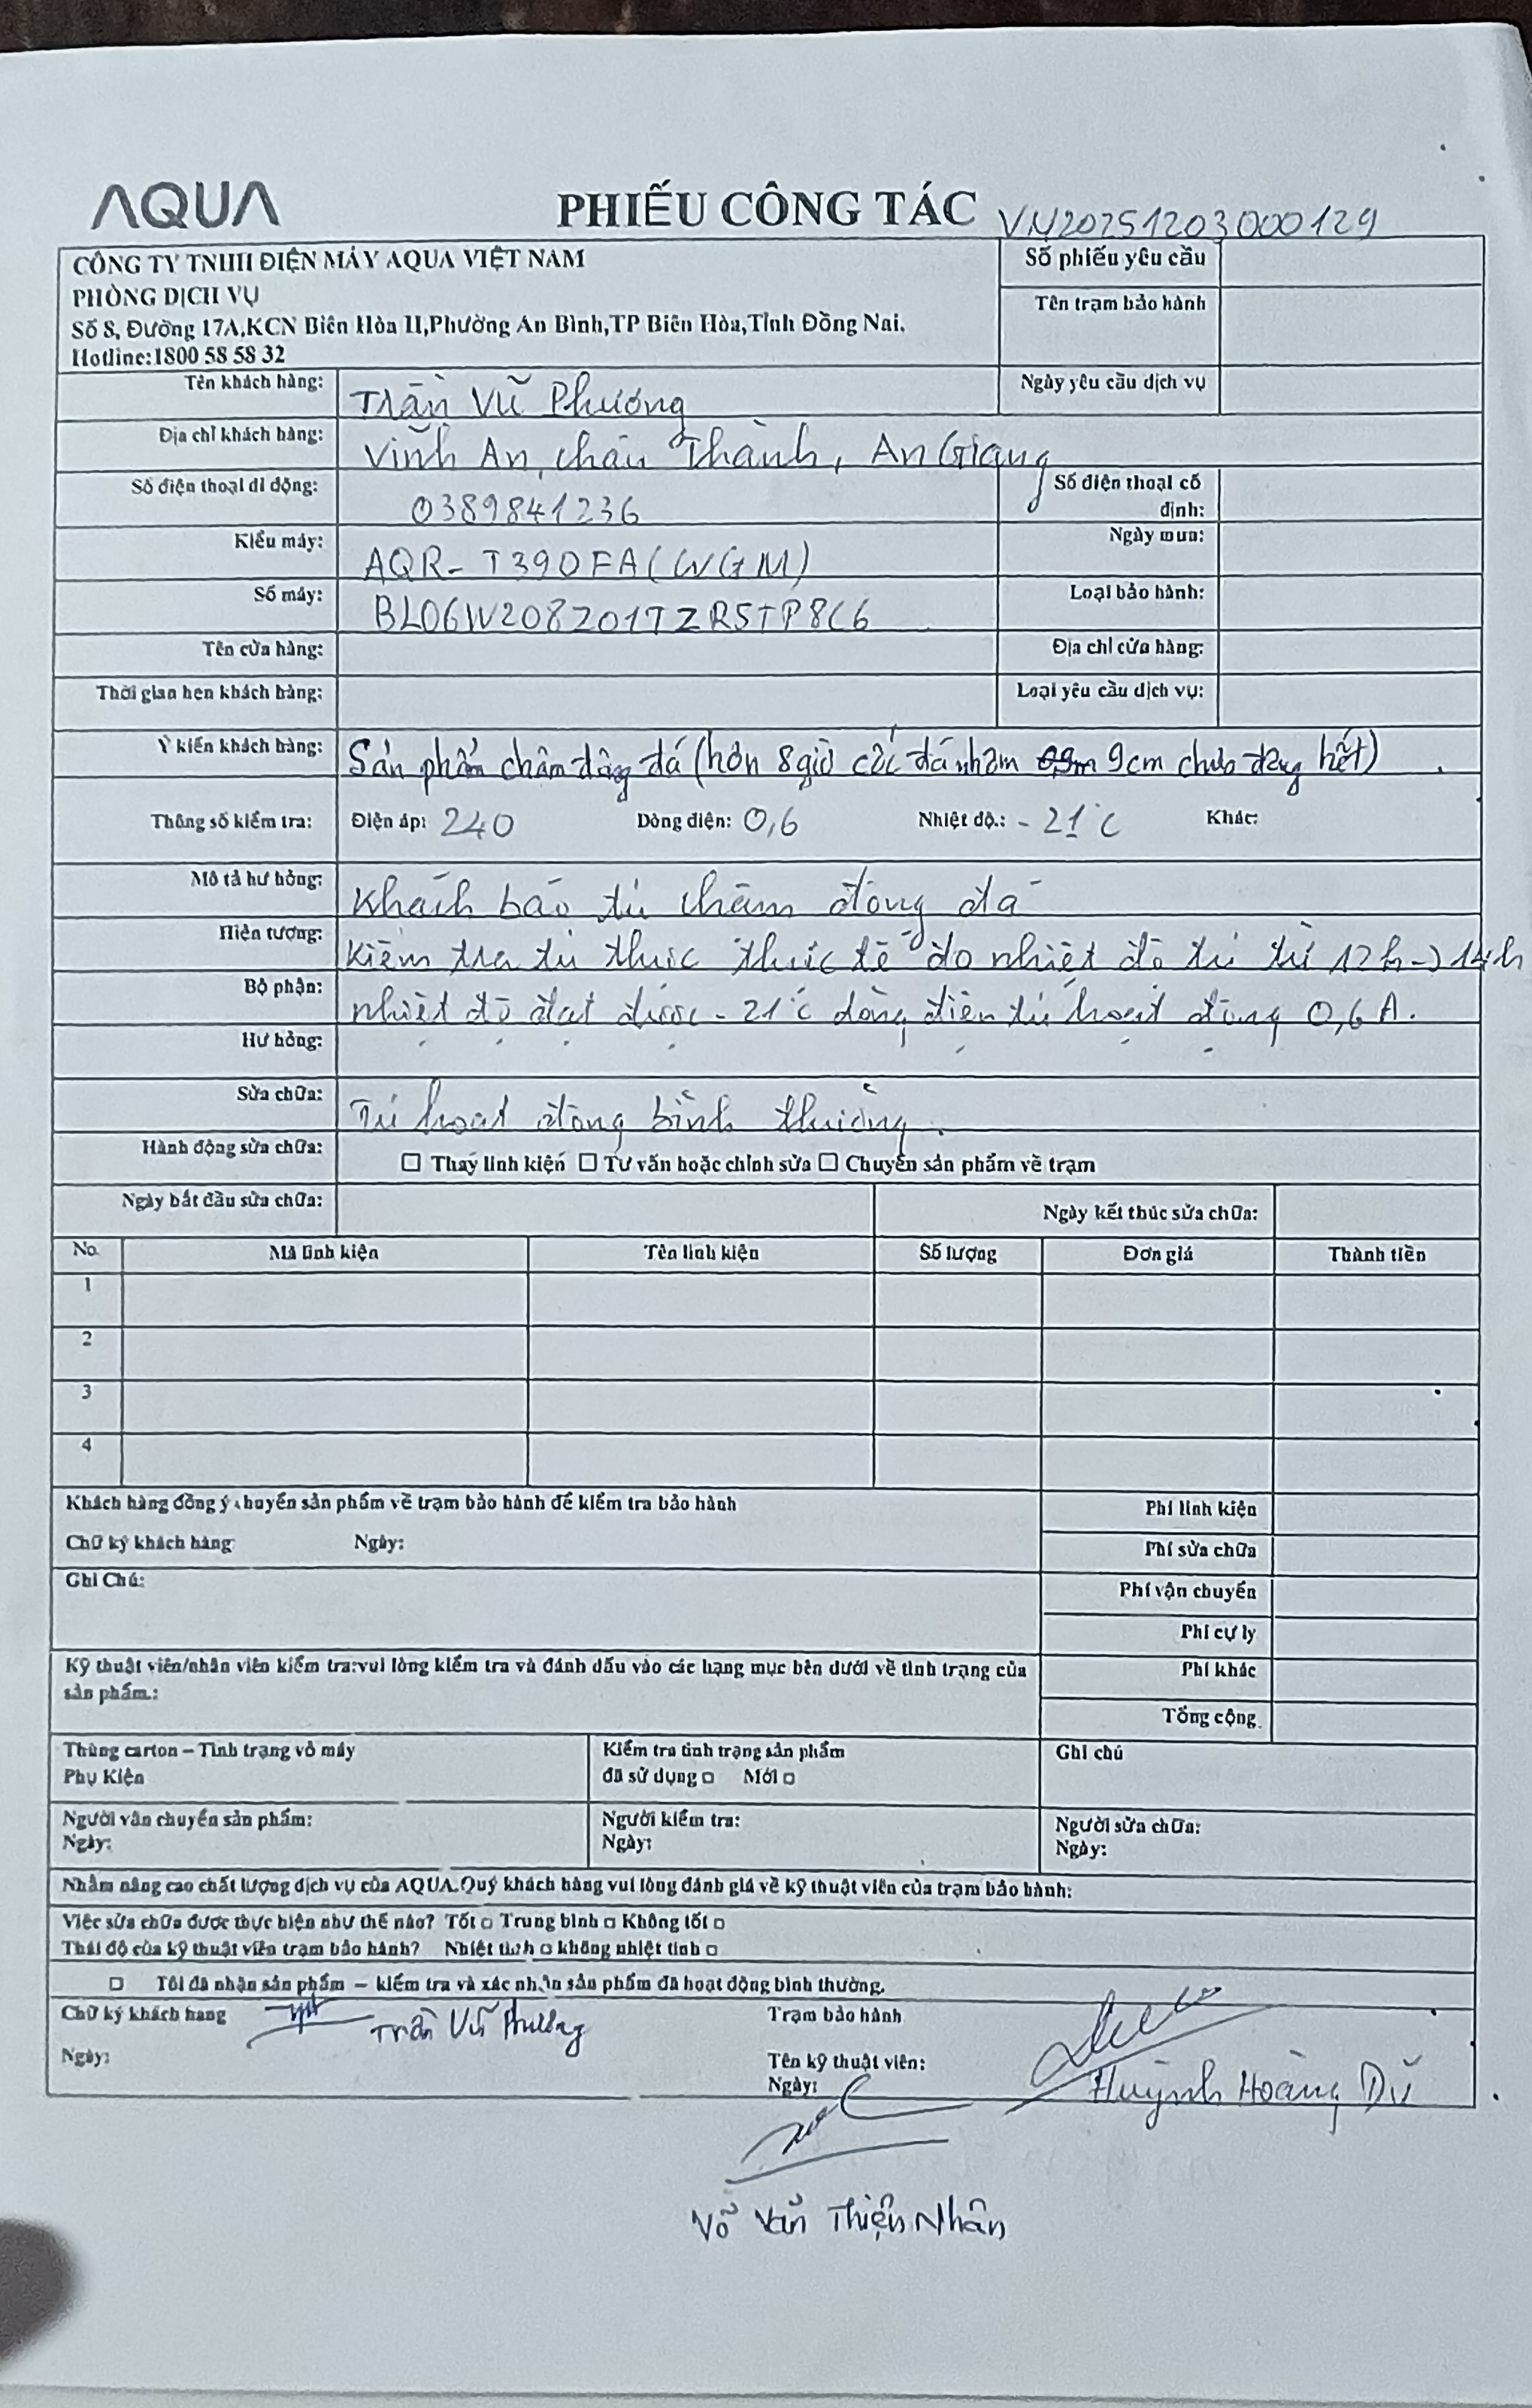 AQUA
PHIẾU CÔNG TÁC VN20251203000129
CÔNG TY TNHH ĐIỆN MÁY AQUA VIỆT NAM
PHÒNG DỊCH VỤ
Số 8, Đường 17A,KCN Biên Hòa II,Phường An Bình,TP Biên Hòa,Tỉnh Đồng Nai.
Hotline:1800 58 58 32
Số phiếu yêu cầu
Tên trạm bảo hành
Tên khách hàng: Trần Vũ Phương
Ngày yêu cầu dịch vụ
Địa chỉ khách hàng: Vĩnh An, Châu Thành, An Giang
Số điện thoại di động: 0389841236
Số điện thoại cố định:
Kiểu máy: AQR-T390FA(WGM)
Ngày mua:
Số máy: BL06W208Z017ZR5TP8C6
Loại bảo hành:
Tên cửa hàng:
Địa chỉ cửa hàng:
Thời gian hẹn khách hàng:
Loại yêu cầu dịch vụ:
Ý kiến khách hàng: Sản phẩm chậm đông đá (hơn 8 giờ cốc đá nhôm 9cm chưa đông hết)
Thông số kiểm tra: Điện áp: 240 Dòng điện: 0,6 Nhiệt độ.: -21°C Khác:
Mô tả hư hỏng: Khách báo tủ chậm đông đá
Hiện tượng: Kiểm tra tủ thực thực tế đo nhiệt độ tủ từ 12h -> 14h
Bộ phận: nhiệt độ đạt được -21°C dòng điện tủ hoạt động 0,6 A.
Hư hỏng:
Sửa chữa: Tủ hoạt động bình thường.
Hành động sửa chữa: □ Thay linh kiện □ Tư vấn hoặc chỉnh sửa □ Chuyển sản phẩm về trạm
Ngày bắt đầu sửa chữa:
Ngày kết thúc sửa chữa:
No. Mã linh kiện Tên linh kiện Số lượng Đơn giá Thành tiền
1
2
3
4
Khách hàng đồng ý chuyển sản phẩm về trạm bảo hành để kiểm tra bảo hành
Chữ ký khách hàng Ngày:
Phí linh kiện
Phí sửa chữa
Ghi Chú:
Phí vận chuyển
Phí cự ly
Kỹ thuật viên/nhân viên kiểm tra:vui lòng kiểm tra và đánh dấu vào các hạng mục bên dưới về tình trạng của
sản phẩm.:
Phí khác
Tổng cộng
Thùng carton – Tình trạng vỏ máy
Phụ Kiện
Kiểm tra tình trạng sản phẩm
đã sử dụng □ Mới □
Ghi chú
Người vận chuyển sản phẩm:
Ngày:
Người kiểm tra:
Ngày:
Người sửa chữa:
Ngày:
Nhằm nâng cao chất lượng dịch vụ của AQUA.Quý khách hàng vui lòng đánh giá về kỹ thuật viên của trạm bảo hành:
Việc sửa chữa được thực hiện như thế nào? Tốt □ Trung bình □ Không tốt □
Thái độ của kỹ thuật viên trạm bảo hành? Nhiệt tình □ không nhiệt tình □
□ Tôi đã nhận sản phẩm – kiểm tra và xác nhận sản phẩm đã hoạt động bình thường.
Chữ ký khách hàng Trần Vũ Phương
Trạm bảo hành
Ngày:
Tên kỹ thuật viên: Huỳnh Hoàng Dũ
Ngày:
Võ Văn Thiện Nhân